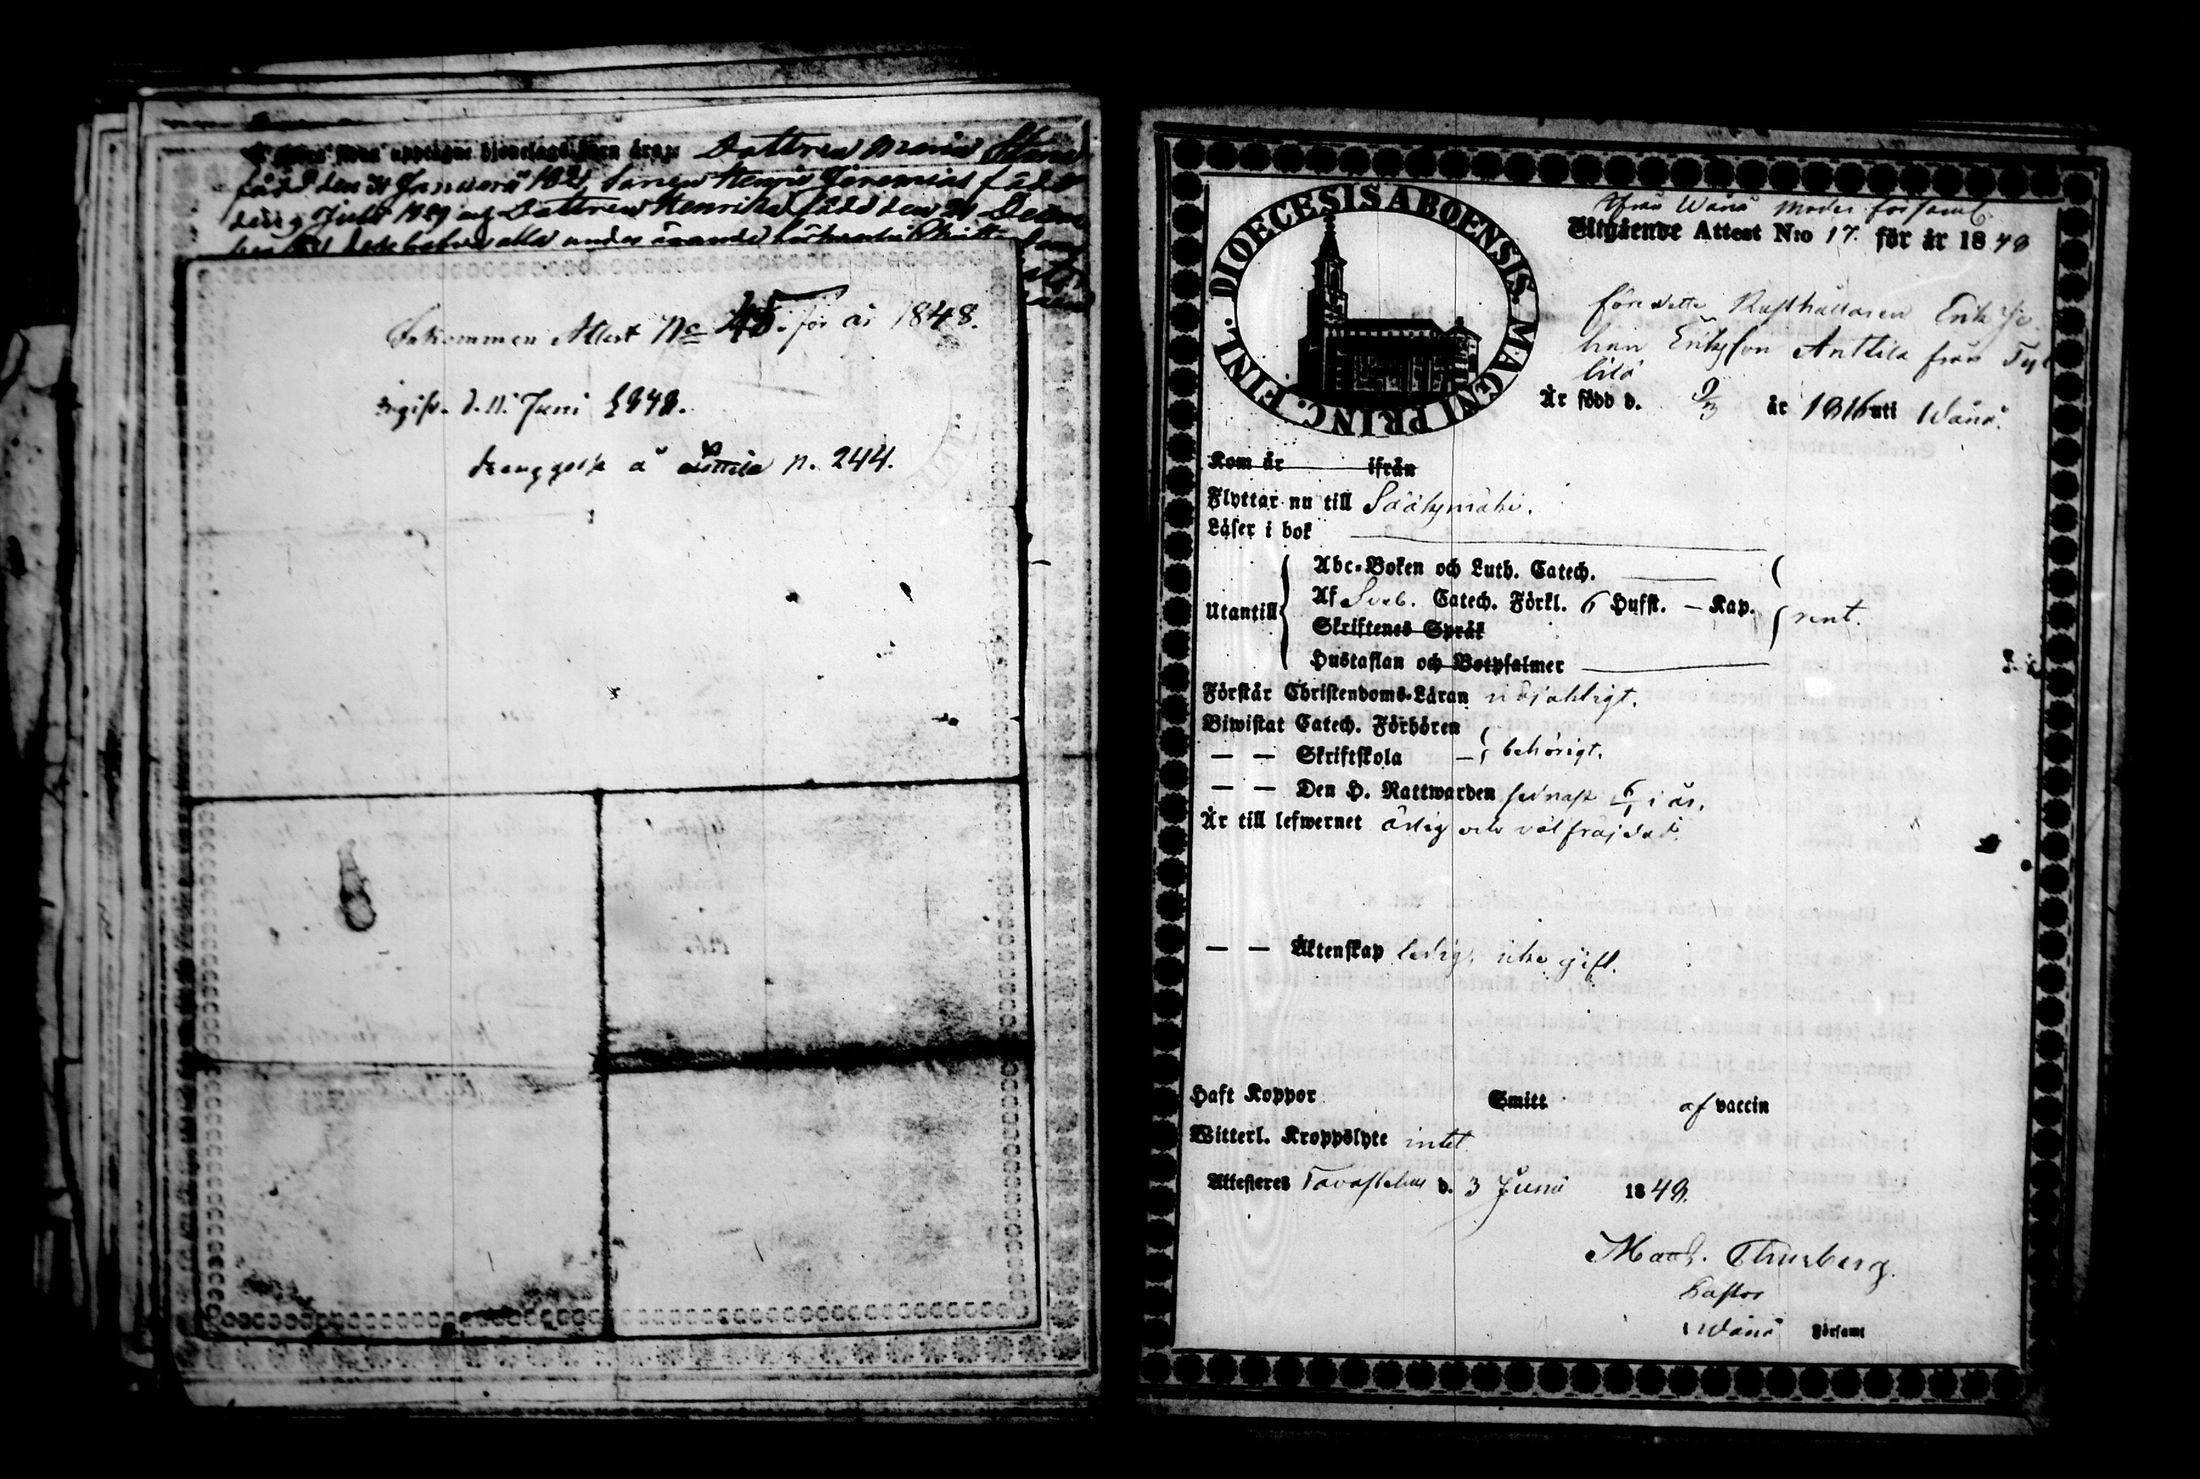 Dottren Maria Stina
född den 31 Januari 1821, Sonen Henric Jeremias född
den 9 Juli 1829 og Dottren Henrika född den 21 Decem
Inkommen Attest No 45. för år 1848.
ingifv. d. 11. Juni 1848.
drenggosse å p. 244.
DIOECESIS ABOENSIS. MAGNI PRINC. FINL.
Ifrån Wånå moder församl.
Utgående Attest N:o 17. för år 1848
före detta Rusthållaren Erik Jo
han Eriksson Anttila från
Är född d. 9/3 år 1816 uti Wånå.
Kom år ifrån
Flyttar nu till Sääksmäki.
Läser i bok
Abc-Boken och Luth. Catech.
Utantill Af Sveb. Catech. Förkl. 6 Hufst. — Kap. rent.
Skriftenes Språk
Hustaflan och Botpsalmer
Förstår Christendoms-Läran nöjaktigt.
Biwistat Catech. Förhören
— — Skriftskola — behörigt.
— — Den H. Nattwarden sednast i år.
Är till lefwernet ärlig och välfräjdad.
— — Äktenskap ledig, icke gift.
Haft Koppor Smitt af vaccin
Witterl. Kroppslyte intet
Attesteres Tavastehus d. 3 Junii 1848.
Math. Thurberg.
Pastor
i Wånå Församl